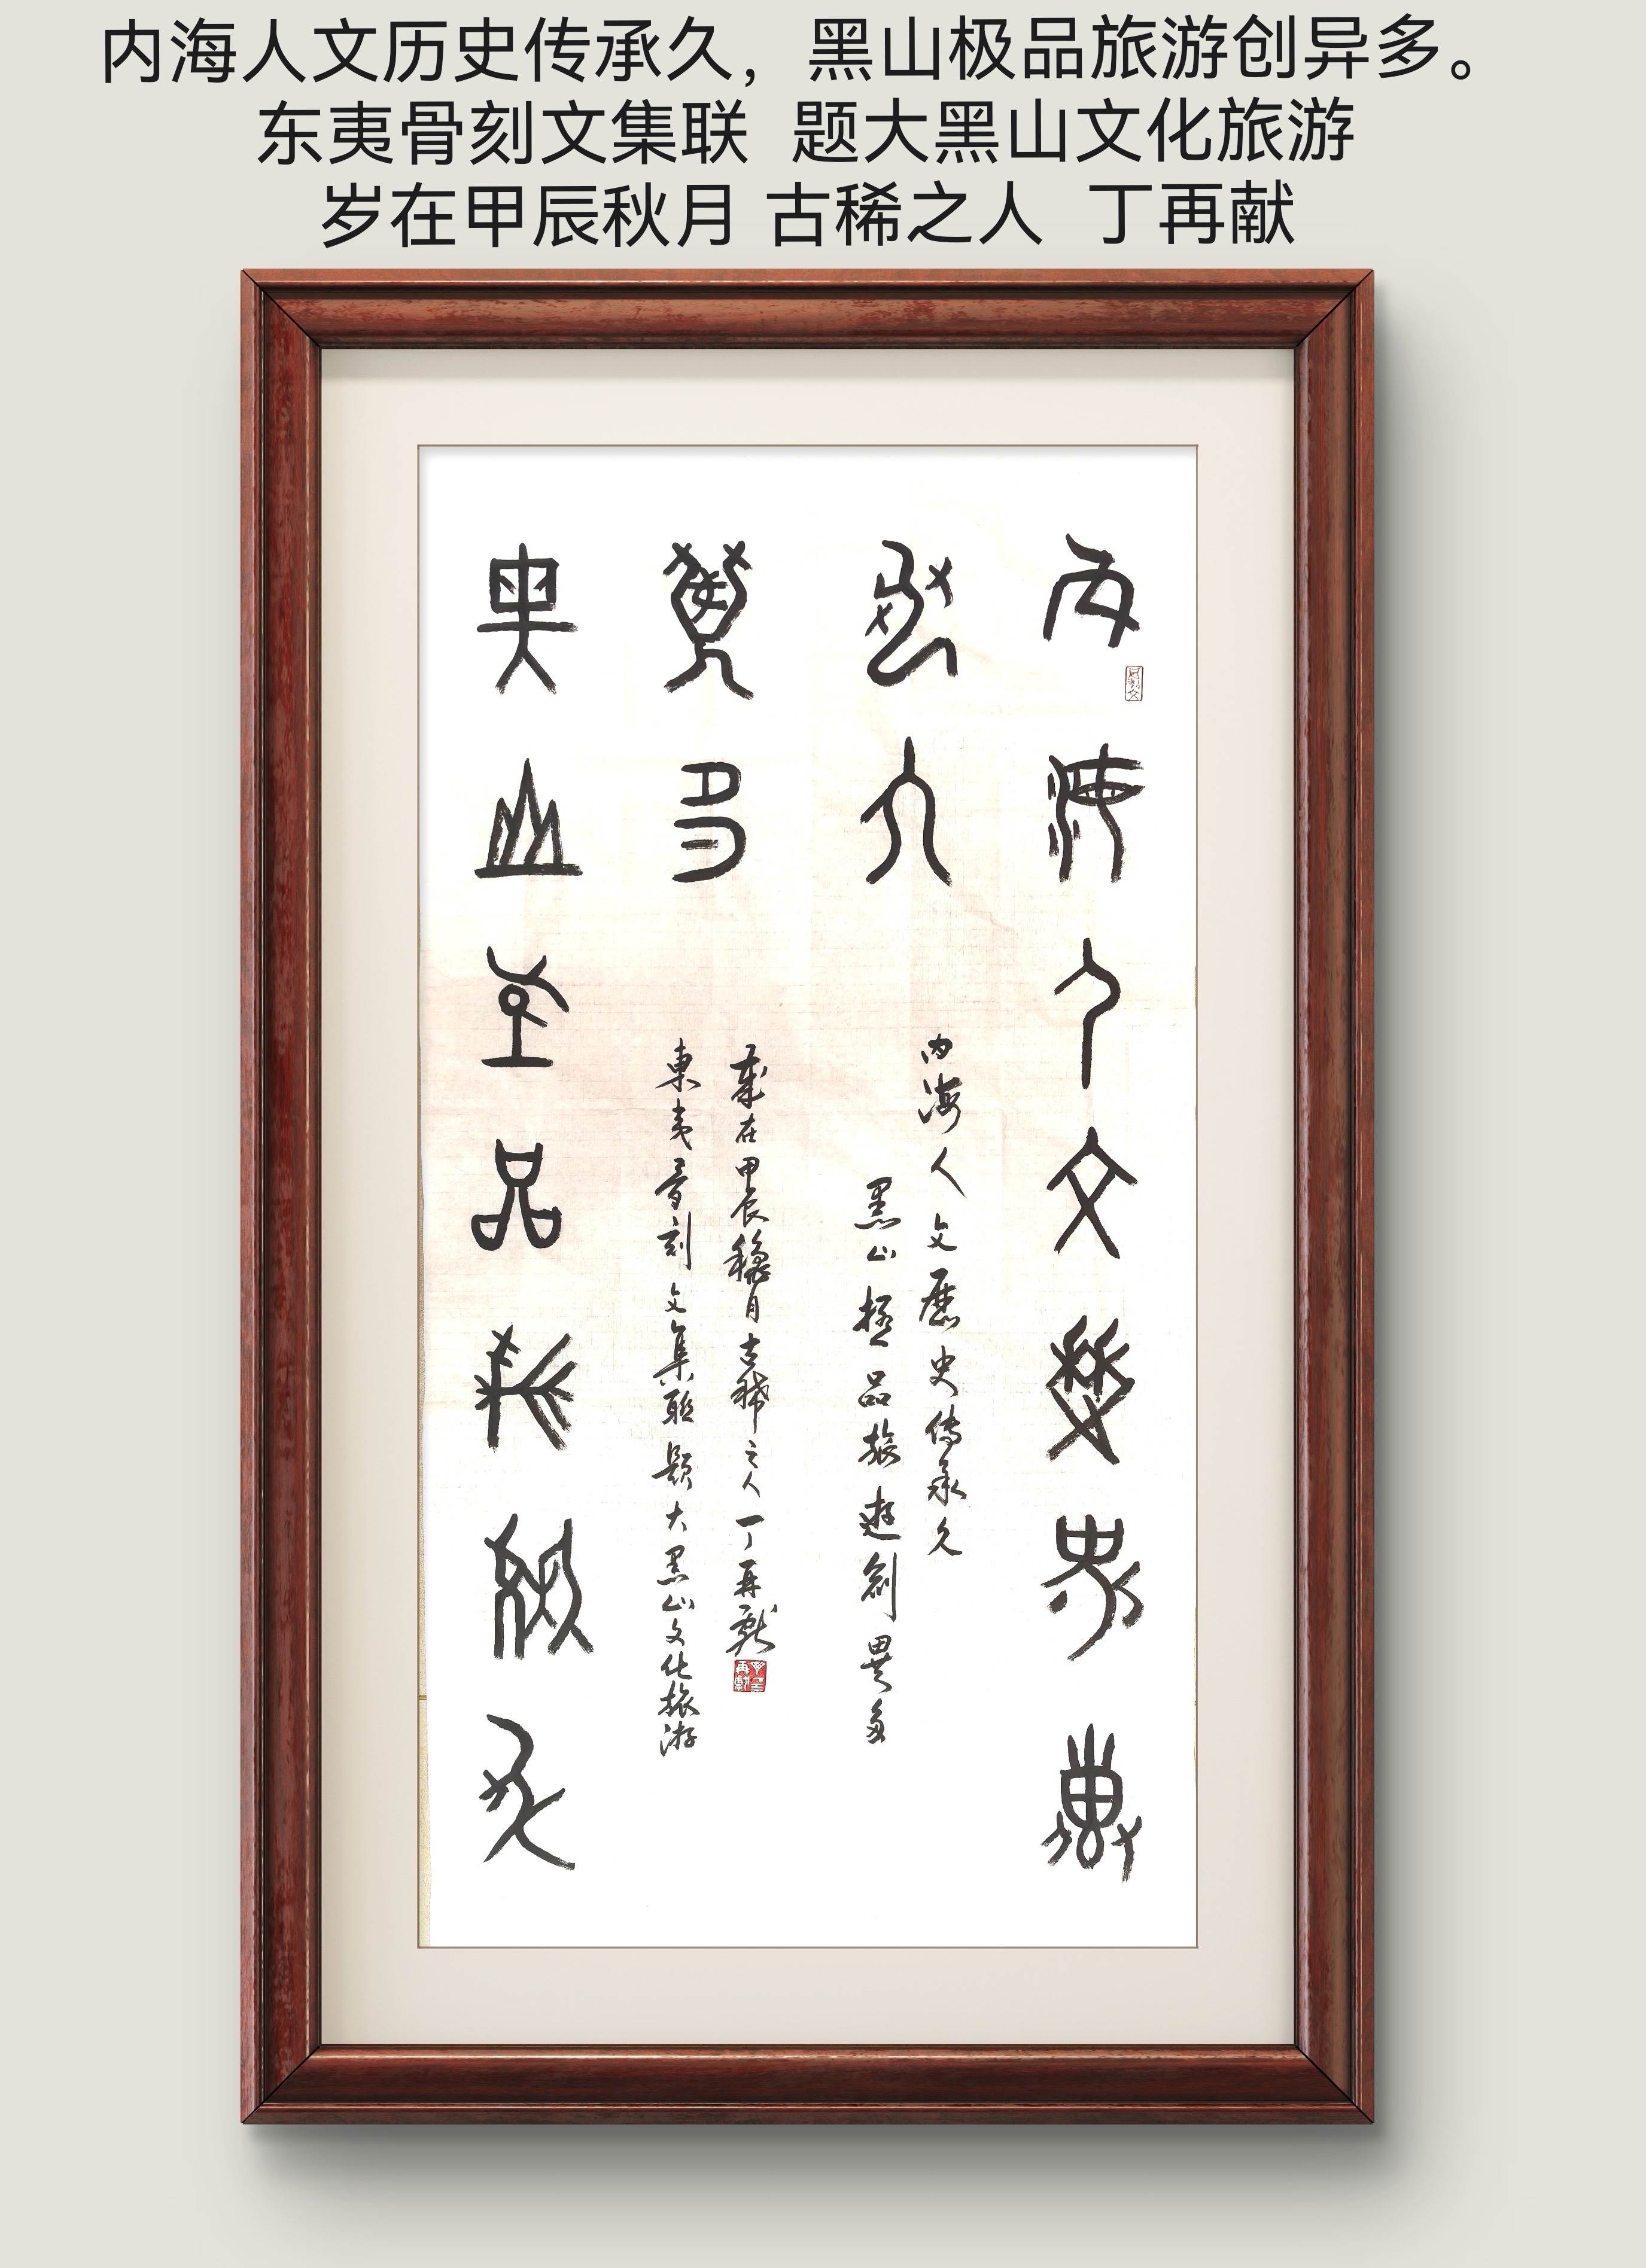 内海人文历史传承久，黑山极品旅游创异多。
东夷骨刻文集联 题大黑山文化旅游
岁在甲辰秋月 古稀之人 丁再献
内海人文歷史傳
承久
黑山極品旅遊創
異多
内海人文歷史傳承久
黑山極品旅遊創異多
東夷骨刻文集聯 題大黑山文化旅游
歲在甲辰穐月古稀之人丁再獻